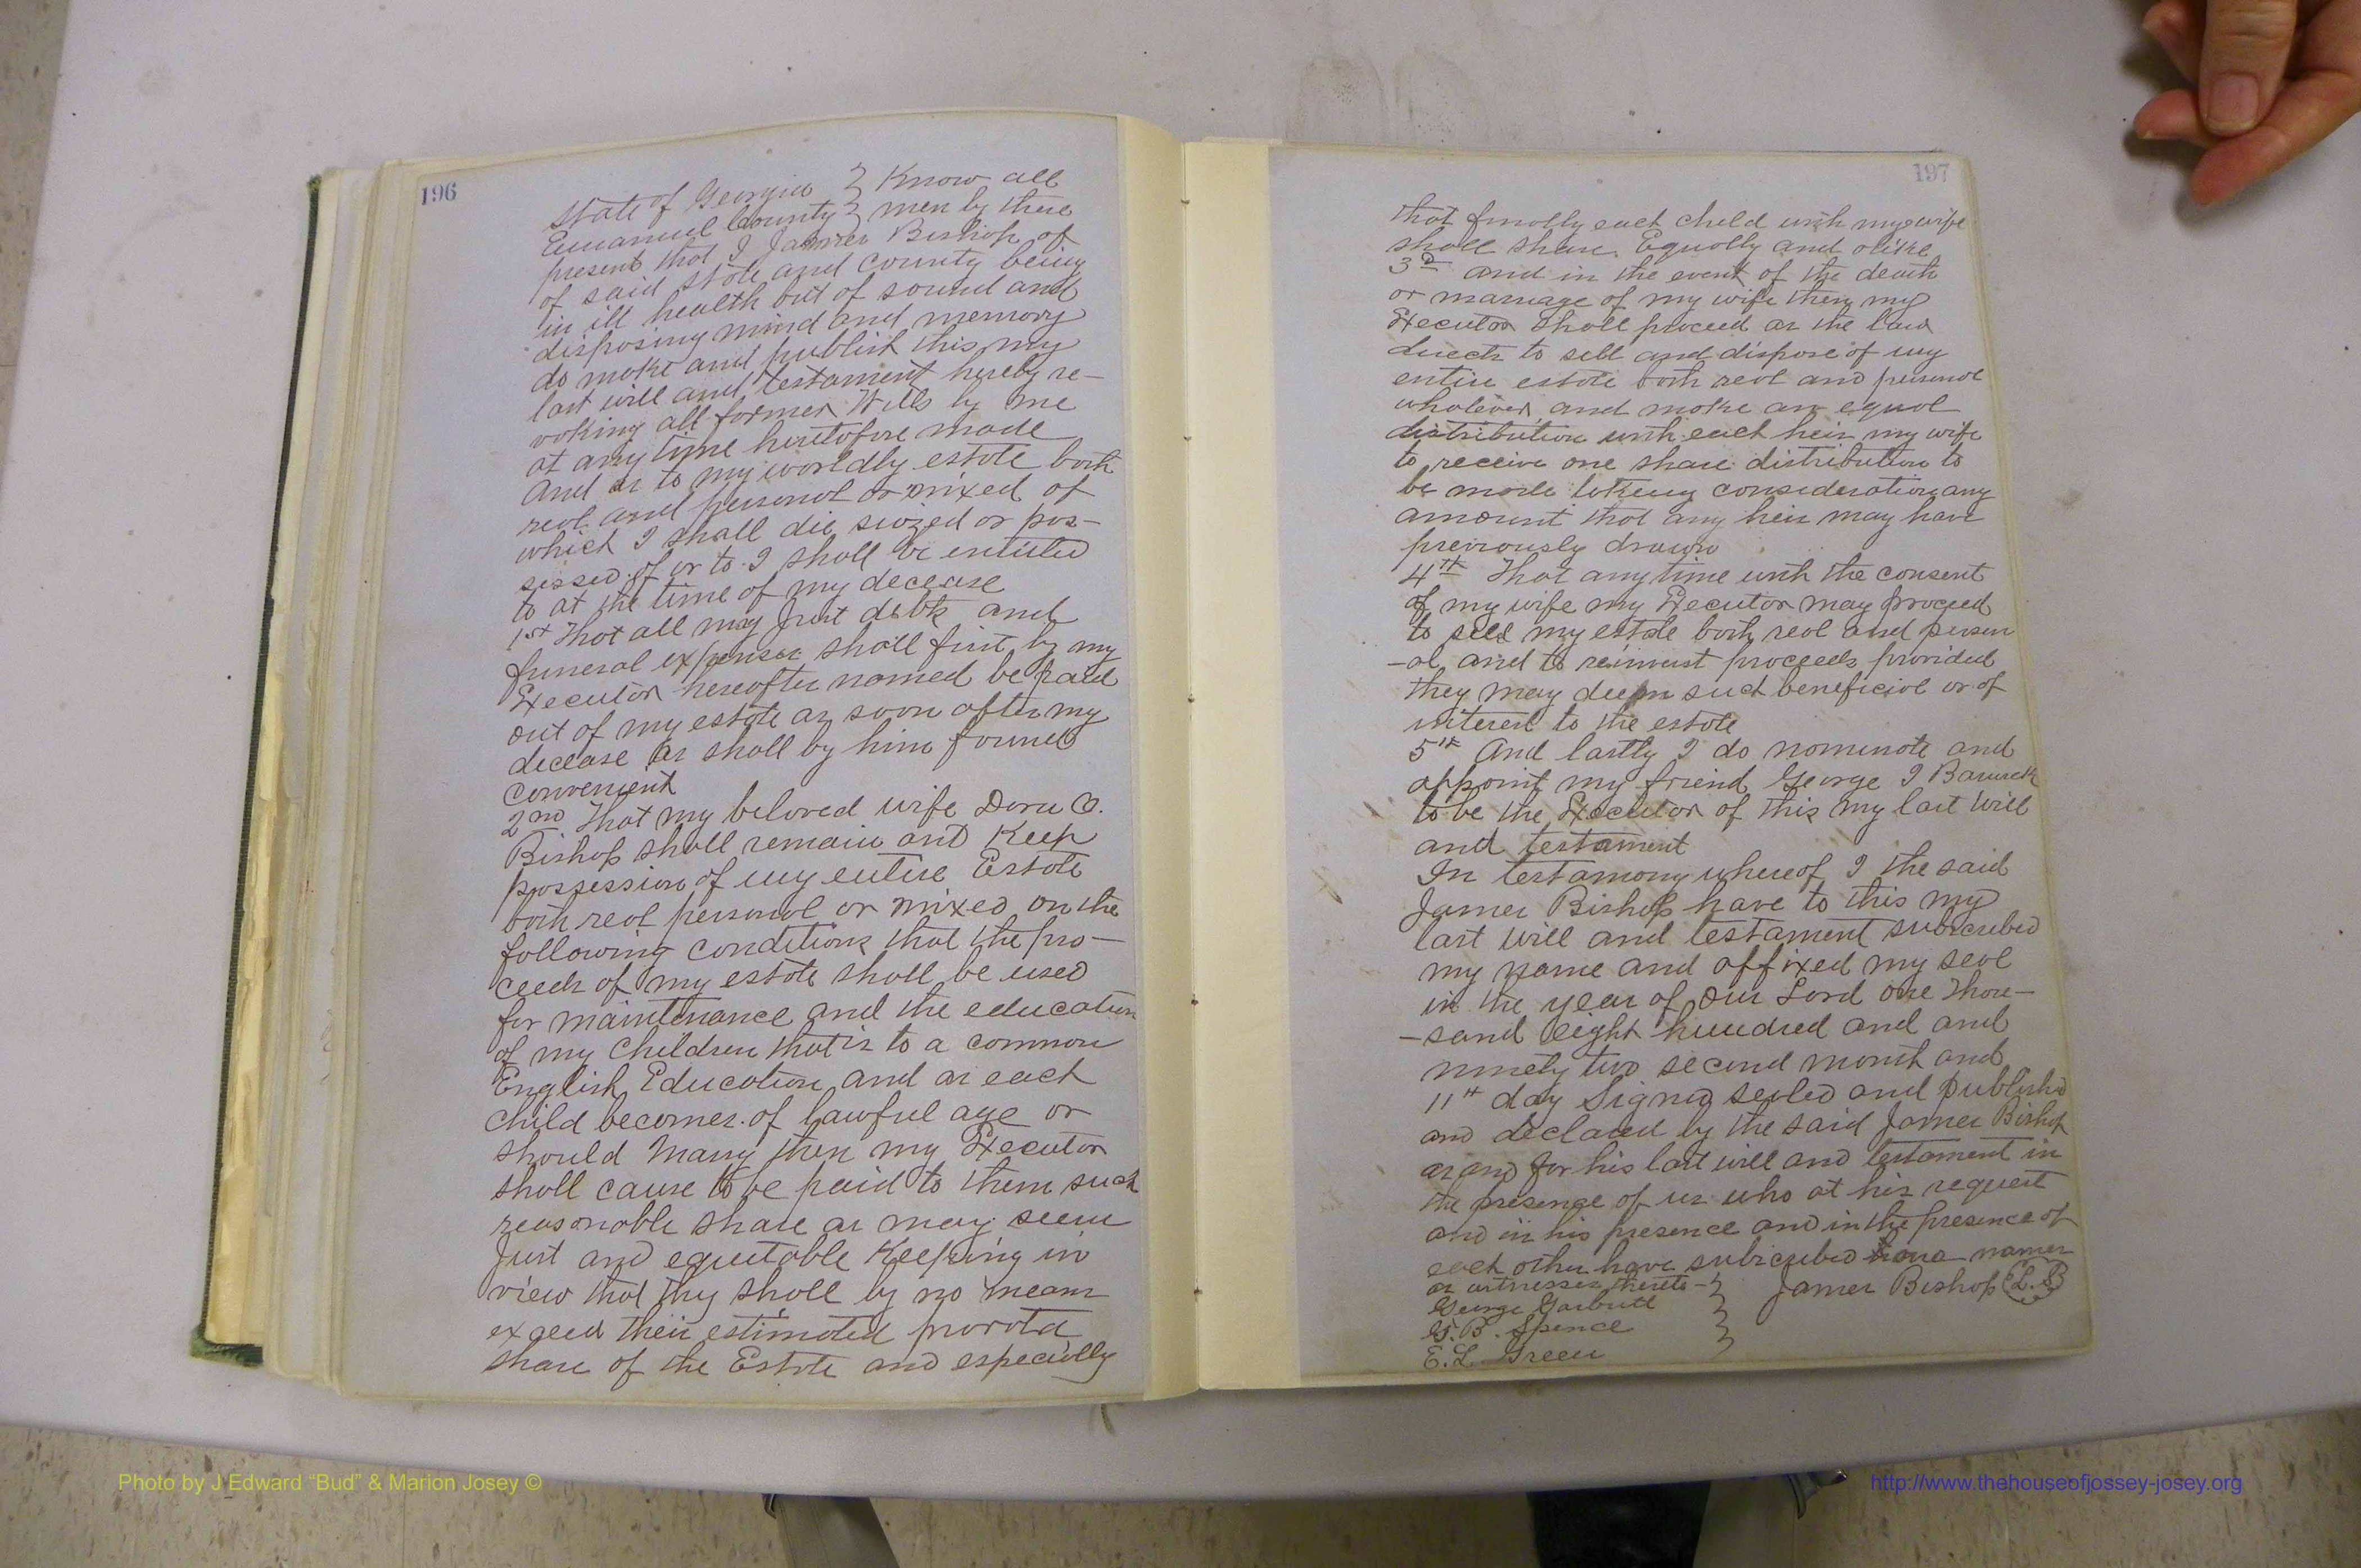 196
State of Georgia } Know all
Emanuel County } men by these
present that I James Bishop of
of said state and county being
in ill health but of sound and
disposing mind and memory
do make and publish this my
last will and testament hereby re-
voking all former Wills by me
at any time heretofore made
And as to my worldly estate both
real and personal or mixed of
which I shall die seized or pos-
sessed of or to I shall be entitled
to at the time of my decease
1st That all my Just debts and
funeral expenses shall first by my
Executor hereafter named be paid
out of my estate as soon after my
decease as shall by him found
convenient
2nd That my beloved wife Dora O.
Bishop shall remain and Keep
possession of my entire Estate
both real personal or mixed on the
following conditions that the pro-
ceeds of my estate shall be used
for maintenance and the education
of my Children that is to a common
English Education and as each
child becomes of lawful age or
should Marry then my Executor
shall cause to be paid to them such
reasonable share as may seem
Just and equitable Keeping in
view that thy shall by no means
exceed their estimated prorota
share of the Estate and especially
197
that finally each child with my wife
shall share Equally and alike
3D and in the event of the death
or marriage of my wife then my
Executor shall proceed as the law
directs to sell and dispose of my
entire estate both real and personal
whatever and make an equal
distribution with each heir my wife
to receive one share distribution to
be made taking consideration any
amount that any heir may have
previously drawn
4th That any time with the consent
of my wife my Executor may proceed
to sell my estate both real and person
-al and to reinvest proceeds provided
they may deem such beneficial or of
interest to the estate
5th And lastly I do nominate and
appoint my friend George I Barwick
to be the Executor of this my last will
and testament
In testamony whereof I the said
James Bishop have to this my
last will and testament subscribed
my name and affixed my seal
in the year of our Lord one thou-
-sand eight hundred and and
ninety two second month and
11th day Signed sealed and published
and declared by the said James Bishop
as and for his last will and testament in
the presence of us who at his request
and in his presence and in the presence of
each other have subscribed names
as witnesses thereto - } James Bishop (L.S)
George Garbutt }
G.B. Spence }
E.L. Green }
Photo by J Edward “Bud” & Marion Josey ©
http://www.thehouseofjossey-josey.org